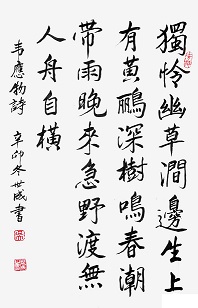 獨怜幽草澗邊生上
有黃鸝深樹鳴春潮
帶雨晚來急野渡無
人舟自橫
韋應物詩 辛卯冬世成書